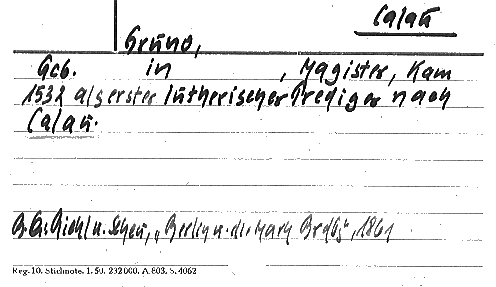 Calau
Gruno,
Geb. in , Magister, Kam
1532 als erster lutherischer Prediger nach
Calau.
Riehl u. Scheu, „Berlin u. die Mark Brdbg", 1861
Reg. 10. Stichnote. 1. 50. 232000. A 803. S. 4062